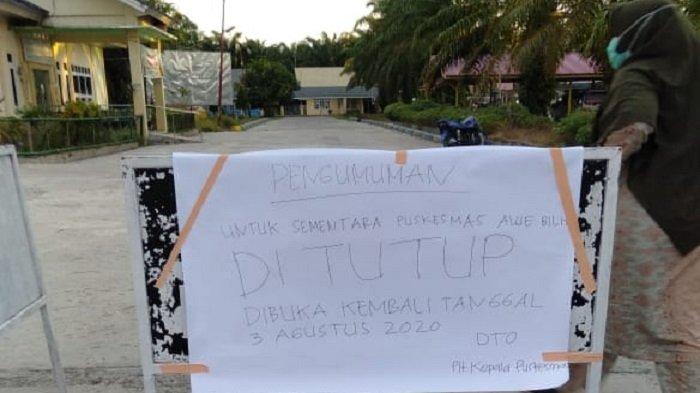 PENGUMUMAN
UNTUK SEMENTARA PUSKESMAS AWE
DI TUTUP
DIBUKA KEMBALI TANGGAL
3 AGUSTUS 2020
DTO
Plt Kepala